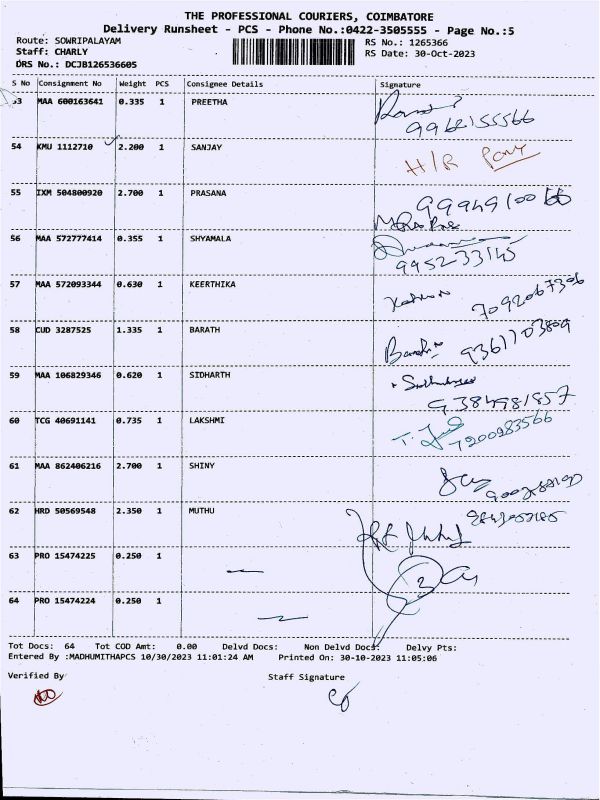 THE PROFESSIONAL COURIERS, COIMBATORE
Delivery Runsheet - PCS - Phone No.:0422-3505555 - Page No.:5
Route: SOWRIPALAYAM
Staff: CHARLY
DRS No.: DCJB126536605
RS No.: 1265366
RS Date: 30-Oct-2023
S No Consignment No Weight PCS Consignee Details Signature
53 MAA 600163641 0.335 1 PREETHA
54 KMU 1112710 2.200 1 SANJAY
H/R
55 IXM 504800920 2.700 1 PRASANA
56 MAA 572777414 0.355 1 SHYAMALA
9952233145
57 MAA 572093344 0.630 1 KEERTHIKA
7092067306
58 CUD 3287525 1.335 1 BARATH
9361103809
59 MAA 106829346 0.620 1 SIDHARTH
9384981857
60 TCG 40691141 0.735 1 LAKSHMI
7200983566
61 MAA 862406216 2.700 1 SHINY
62 HRD 50569548 2.350 1 MUTHU
63 PRO 15474225 0.250 1
64 PRO 15474224 0.250 1
Tot Docs: 64 Tot COD Amt: 0.00 Delvd Docs: Non Delvd Docs: Delvy Pts:
Entered By :MADHUMITHAPCS 10/30/2023 11:01:24 AM Printed On: 30-10-2023 11:05:06
Verified By
Staff Signature